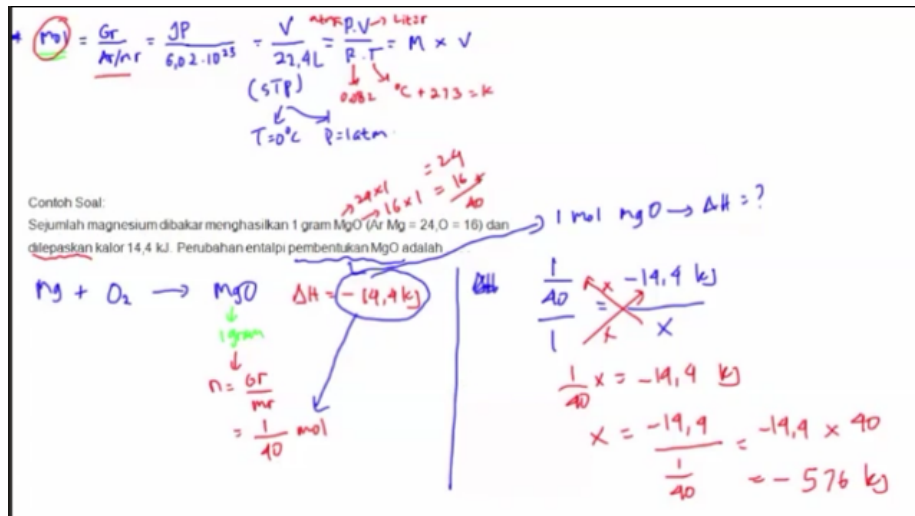 mol = Gr / Ar/mr = JP / 6,02 . 10²³ = V / 22,4 L = P.V / R.T = M x V
atm Liter
(STP) 0,082 °C + 273 = K
T=0°C P=1atm
24x1 = 24
16x1 = 16 +
40
Contoh Soal:
Sejumlah magnesium dibakar menghasilkan 1 gram MgO (Ar Mg = 24,O = 16) dan
dilepaskan kalor 14,4 kJ. Perubahan entalpi pembentukan MgO adalah
1 mol mgO → ΔH = ?
Mg + O₂ → MgO ΔH = - 14,4 kJ
1 gram
n = Gr / mr
= 1/40 mol
1/40 / 1 = -14,4 kJ / x
1/40 x = -14,4 kJ
x = -14,4 / 1/40 = -14,4 x 40
= - 576 kJ